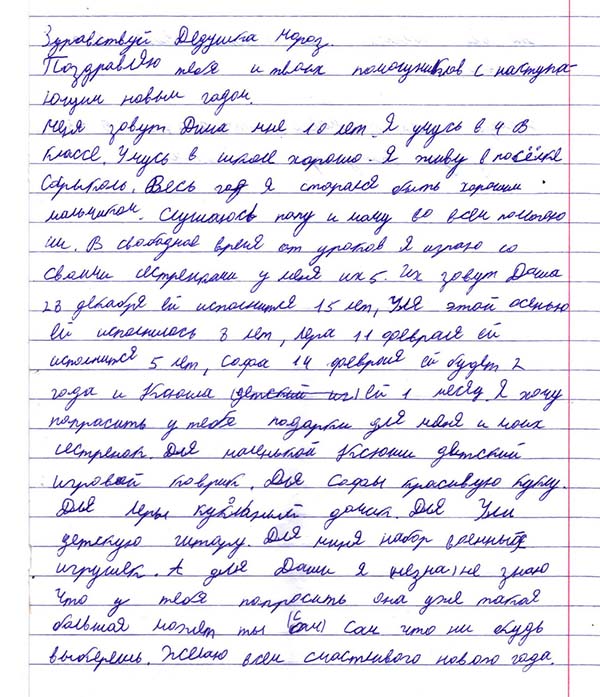 Здравствуй Дедушка мороз.
Поздравляю тебя и твоих помощников с наступа-
ющим новым годом.
меня зовут Дима мне 10 лет. Я учусь в 4 В
классе. Учусь в школе хорошо. Я живу в посёлке
Сарыколь. Весь год я старался быть хорошим
мальчиком. Слушаюсь папу и маму во всем помогаю
им. В свободное время от уроков я играю со
своими сестренками у меня их 5. Их зовут Даша
28 декабря ей исполнится 15 лет, Уля этой осенью
ей исполнилось 8 лет, Лера 11 февраля ей
исполнится 5 лет, Софа 14 февраля ей будет 2
года и Ксюша (детский иг) ей 1 месяц. Я хочу
попрасить у тебя подарки для меня и моих
сестренок. Для маленькой Ксюши детский
игровой коврик. Для Софы красивую куклу.
Для Леры кукольный домик. Для Ули
детскую гитару. Для миня набор военных
игрушек. А для Даши я (незна) не знаю
что у тебя попрасить она уже такая
большая может ты (сам) Сам что ни будь
выберешь. Желаю всем счастливого нового года.